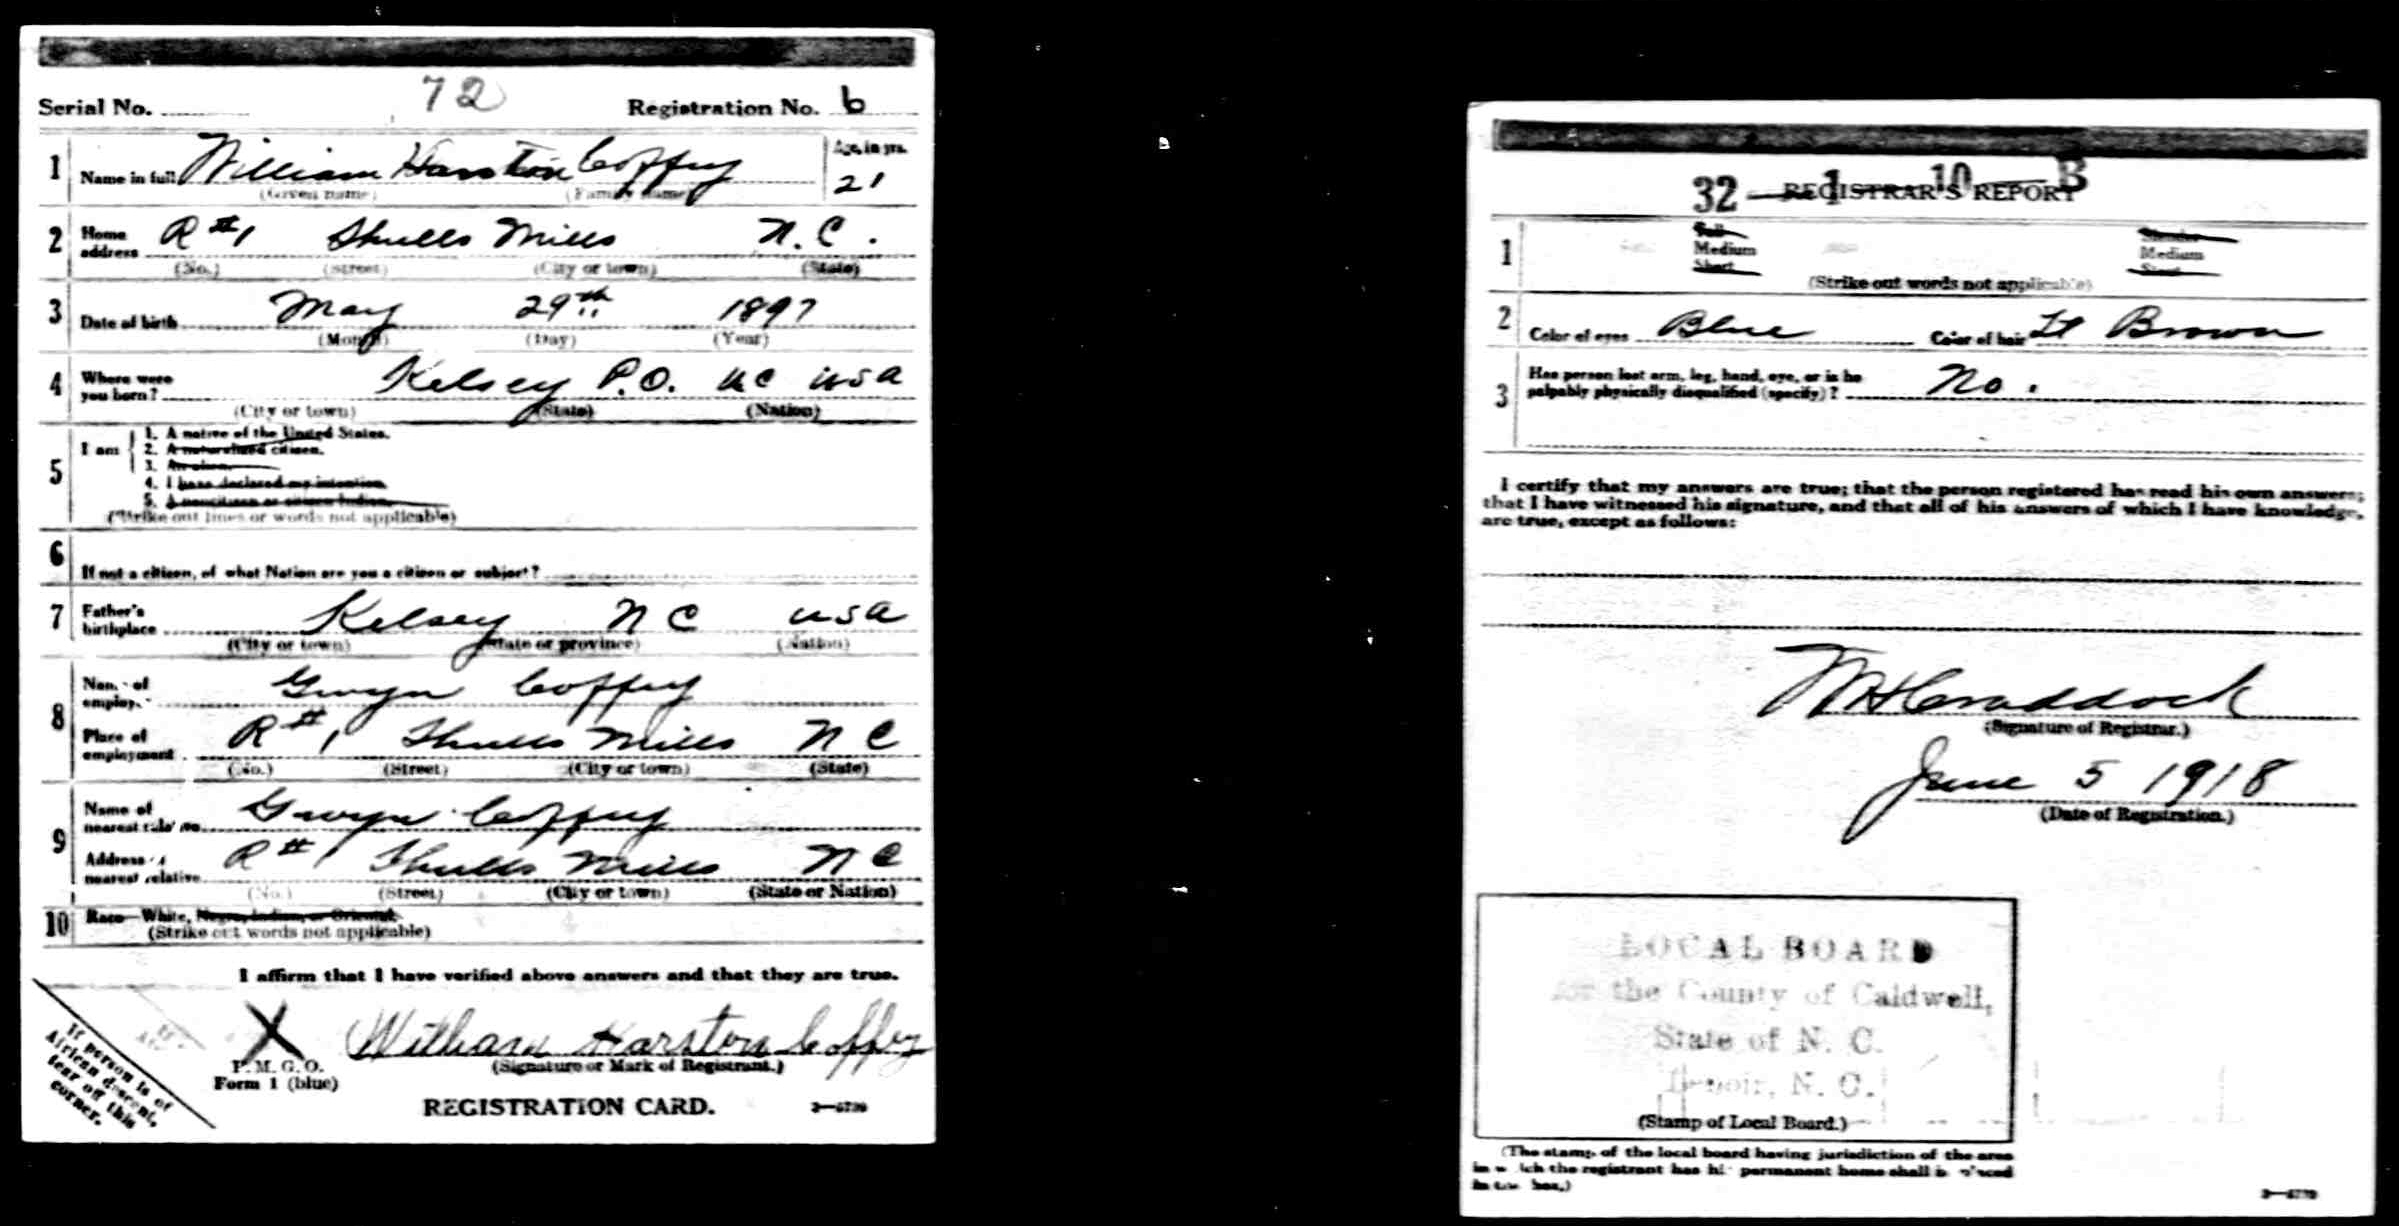 72
Serial No. Registration No. 6
1 Name in full William Harston Coffey Age, in yrs. 21
(Given name) (Family name)
2 Home address R #1 Shulls Mills N.C.
(No.) (Street) (City or town) (State)
3 Date of birth May 29th 1897
(Month) (Day) (Year)
4 Where were you born? Kelsey P.O. NC USA
(City or town) (State) (Nation)
5 I am
1. A native of the United States.
2. A naturalized citizen.
3. An alien.
4. I have declared my intention.
5. A noncitizen or citizen Indian.
(Strike out lines or words not applicable)
6 If not a citizen, of what Nation are you a citizen or subject?
7 Father's birthplace Kelsey NC USA
(City or town) (State or province) (Nation)
8 Name of employer Gwyn Coffey
Place of employment R #1 Shulls Mills NC
(No.) (Street) (City or town) (State)
9 Name of nearest relative Gwyn Coffey
Address of nearest relative R #1 Shulls Mills NC
(No.) (Street) (City or town) (State or Nation)
10 Race—White, Negro, Indian, or Oriental.
(Strike out words not applicable)
I affirm that I have verified above answers and that they are true.
X William Harston Coffey
P. M. G. O. (Signature or Mark of Registrant.)
Form 1 (blue)
REGISTRATION CARD.
If person is of
African descent,
tear off this
corner.
32—1—10—B
REGISTRAR'S REPORT
1 Tall Slender
Medium Medium
Short Stout
(Strike out words not applicable)
2 Color of eyes Blue Color of hair Lt Brown
3 Has person lost arm, leg, hand, eye, or is he
palpably physically disqualified (specify)? No.
I certify that my answers are true; that the person registered has read his own answers;
that I have witnessed his signature, and that all of his answers of which I have knowledge,
are true, except as follows:
Craddock
(Signature of Registrar.)
June 5 1918
(Date of Registration.)
LOCAL BOARD
for the County of Caldwell,
State of N. C.
Lenoir, N. C.
(Stamp of Local Board.)
(The stamp of the local board having jurisdiction of the area
in which the registrant has his permanent home shall be placed
in this box.)